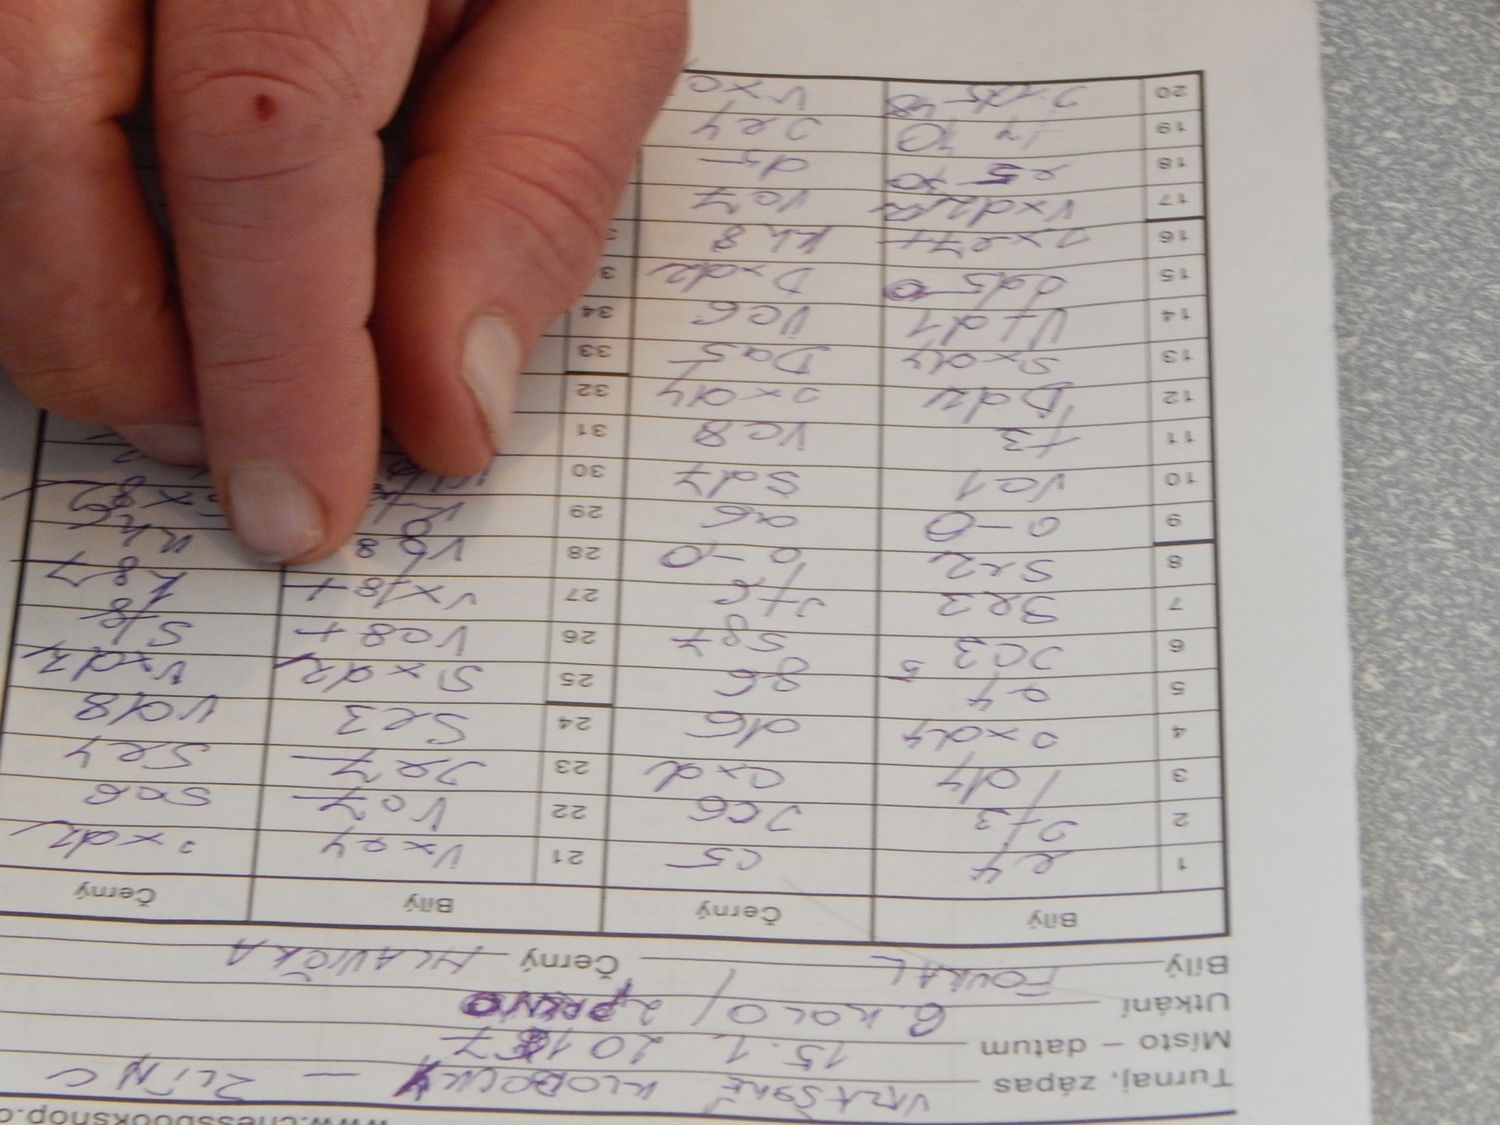 www.chessbookshop.c
Turnaj, zápas KLOBOUKY – ZLÍN C
Místo – datum 15.1. 2017
Utkání 6. KOLO
Bílý FOUKAL Černý HLAVIČKA
Bílý Černý Bílý Černý
1 e4 c5 21 Vxe4 Jxd2
2 Jf3 Jc6 22 Vc7 Sc6
3 d4 cxd 23 Je7 Se4
4 Jxd4 d6 24 Se3 Vd8
5 g6 25 Sxd2 Vxd2
6 Jc3 Sg7 26 Vc8+ Sf8
7 Se3 Jf6 27 Vxf8+ Kg7
8 Se2 0-0 28 Vg8 Kh6
9 0-0 a6 29
10 Vc1 Sd7 30
11 f3 Vc8 31
12 Dd2 Jxd4 32
13 Sxd4 Da5 33
14 Vfd1 Vc6 34
15 Jd5 Dxd2 3
16 Jxe7+ Kh8 3
17 Vxd2 Vc7
18 e5 d5
19 Je4
20 Vxc